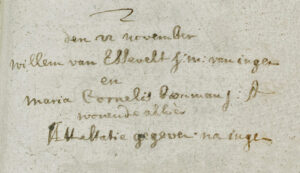 den 22 november
Willem van Essevelt j: m: van ingen
en
Maria Cornelis j: d
wonende alhier
Attestatie gegeven na ingen